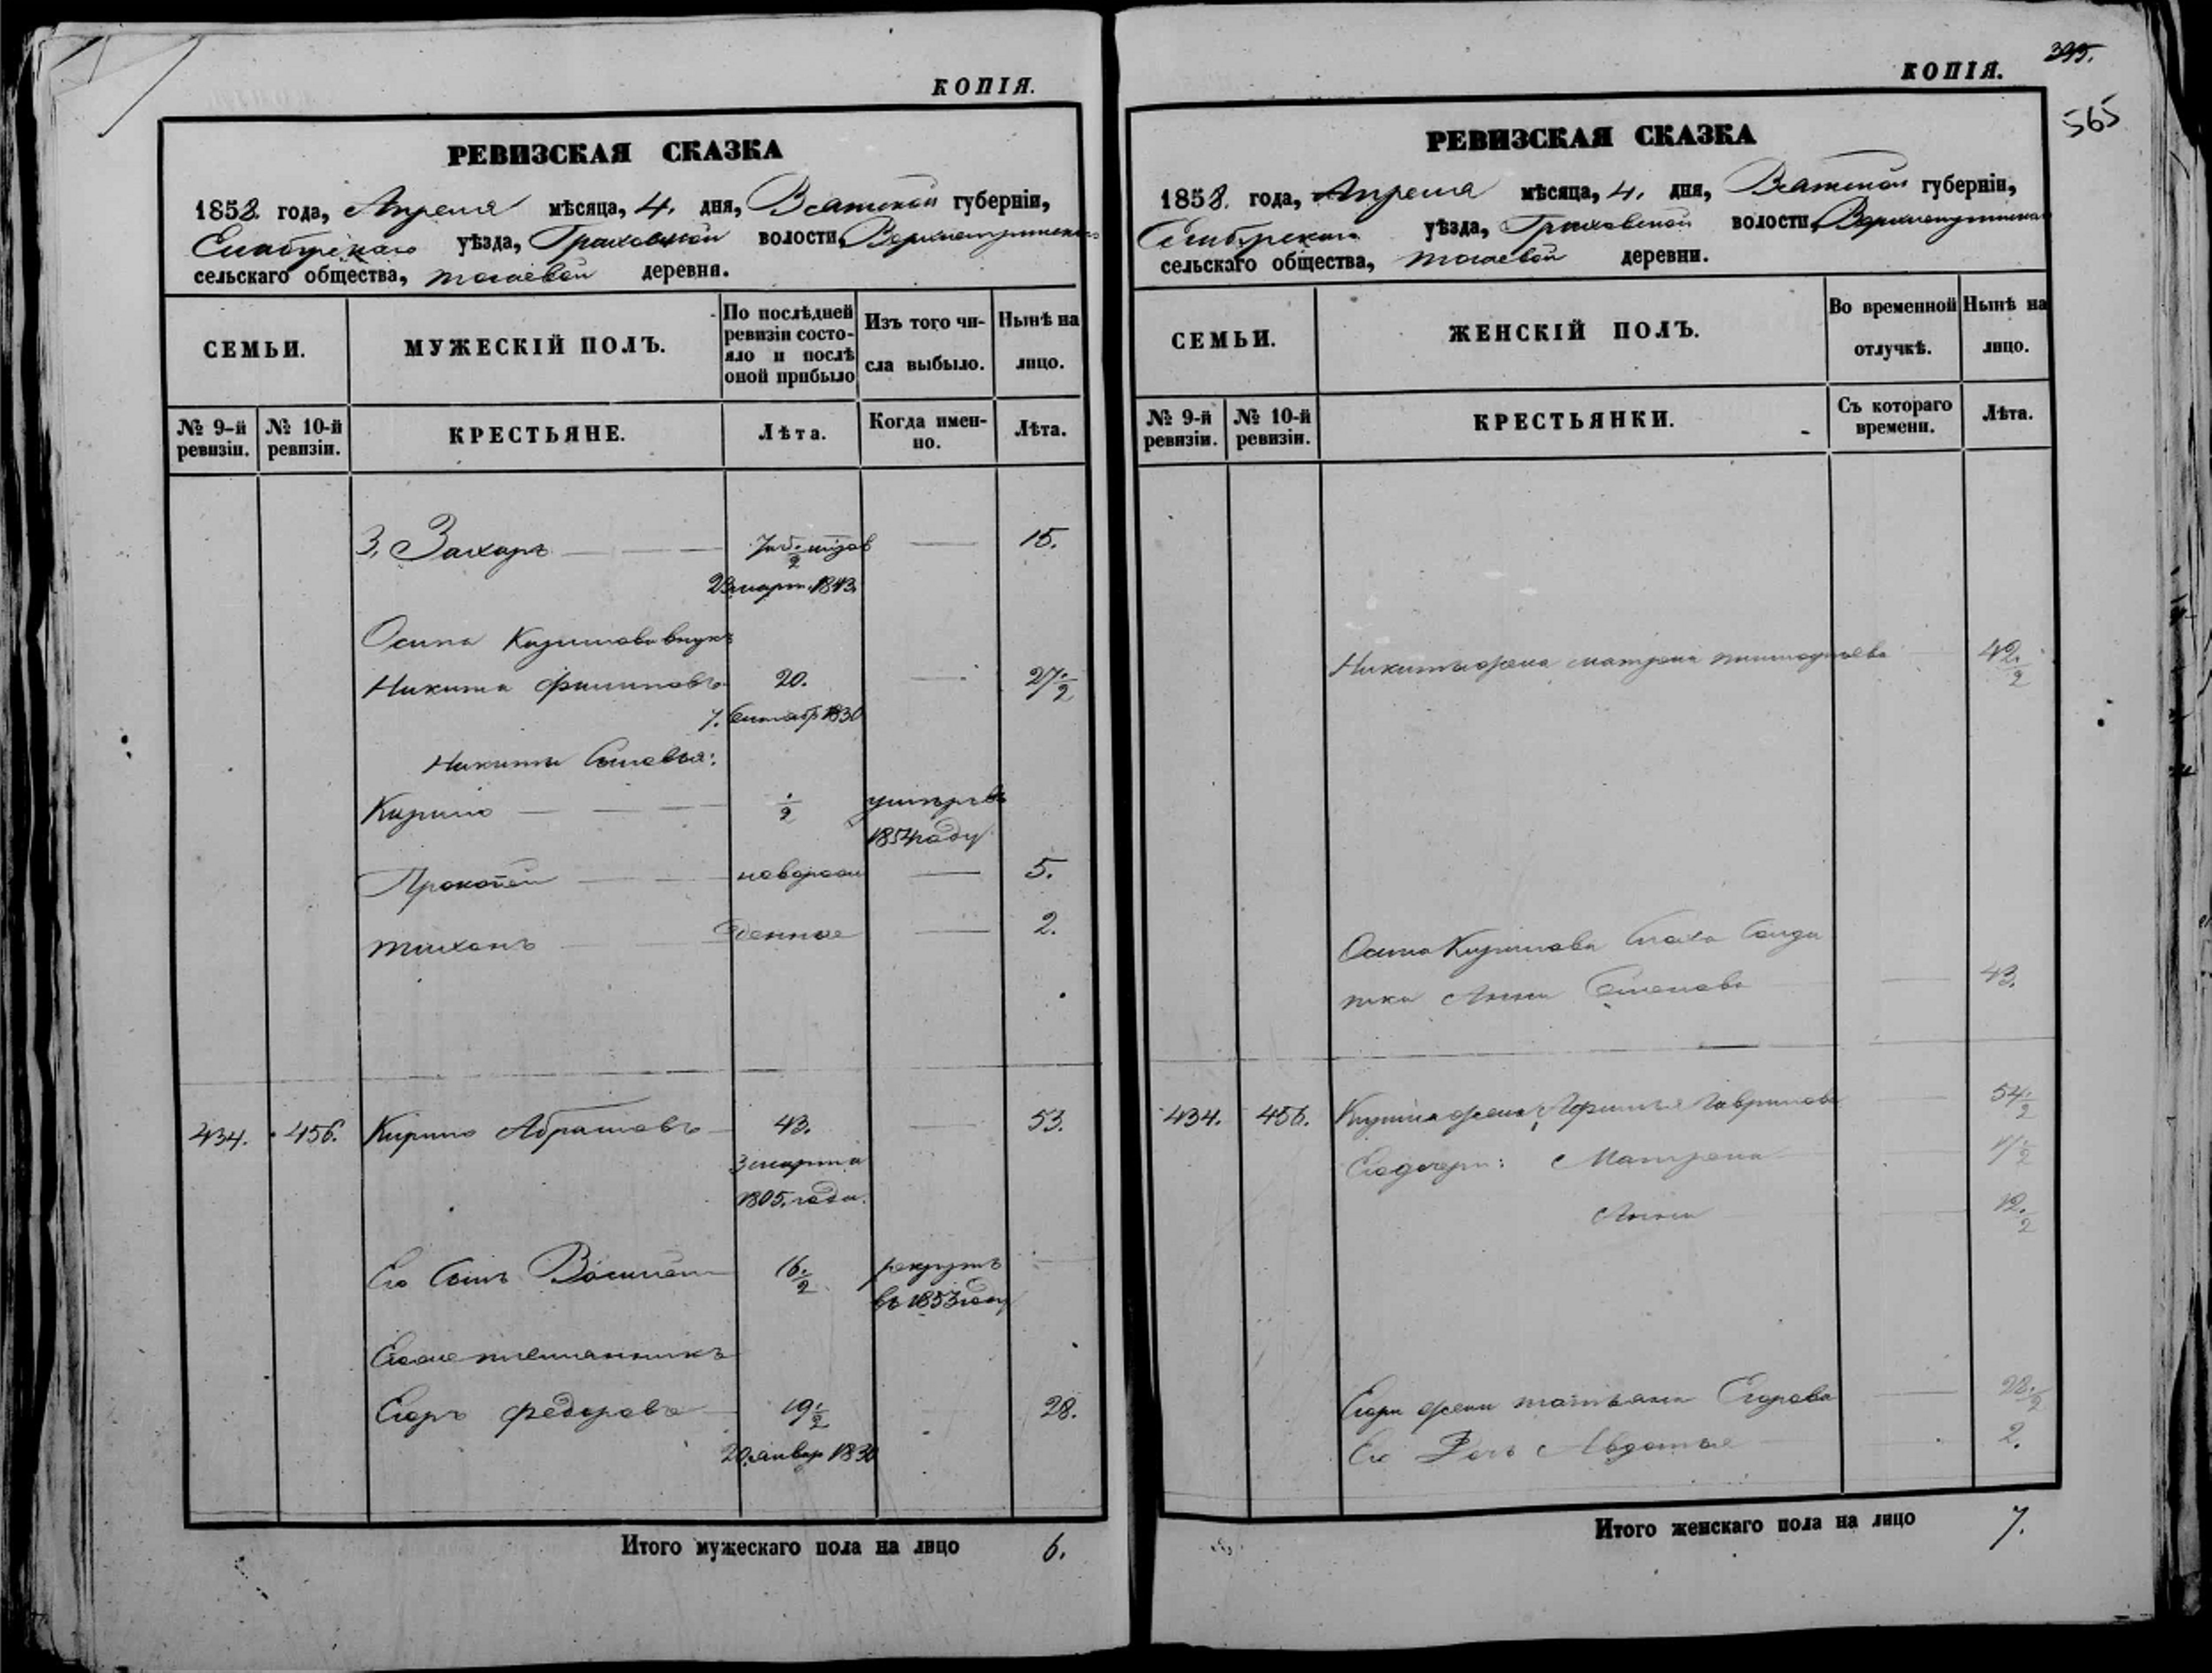 КОПІЯ.
РЕВИЗСКАЯ СКАЗКА
1858. года, Апреля мѣсяца, 4. дня, Вятской губерніи,
Елабужскаго уѣзда, Граховской волости,
сельскаго общества, деревни.
СЕМЬИ.
МУЖЕСКІЙ ПОЛЪ.
По послѣдней ревизіи состояло и послѣ оной прибыло
Изъ того числа выбыло.
Нынѣ на лицо.
№ 9-й ревизіи.
№ 10-й ревизіи.
КРЕСТЬЯНЕ.
Лѣта.
Когда именно.
Лѣта.
3, Захаръ 15.
23 март. 1843.
Осипа Кирилова внукъ
Никита Филиповъ 20. 27.½
7. Сентябр 1830
Никиты Сыновья:
Кирило ½ умеръ въ
1854 году
Прокопей новорож 5.
Тихонъ денные 2.
434. 456. Кирило Абрамовъ 43. 53.
3 марта
1805. года.
Его Сынъ Василей 16.½ рекрутъ
въ 1853 году
Егоже племянникъ
Егоръ Федоровъ 19½ 28.
20. январ 1830
Итого мужескаго пола на лицо 6.
КОПІЯ.
565
РЕВИЗСКАЯ СКАЗКА
1858. года, Апреля мѣсяца, 4. дня, Вятской губерніи,
Елабужскаго уѣзда, Граховской волости,
сельскаго общества, деревни.
СЕМЬИ.
ЖЕНСКІЙ ПОЛЪ.
Во временной отлучкѣ.
Нынѣ на лицо.
№ 9-й ревизіи.
№ 10-й ревизіи.
КРЕСТЬЯНКИ.
Съ котораго времени.
Лѣта.
Никиты жена Матрена Тимофеева 42.½
Осипа Кирилова Сноха Солда
тка Анна Семенова 43.
434. 456. Кирила жена Гаврилова 54.½
Его дочери: Матрена
Анна 12.½
Егора жена Татьяна Егорова 28.½
Его Дочь Авдотья 2.
Итого женскаго пола на лицо 7.